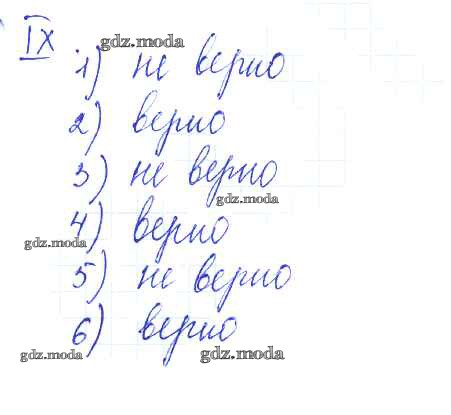 IX
gdz.moda
1) не верно
2) верно
3) не верно
gdz.moda
4) верно
gdz.moda
5) не верно
6) верно
gdz.moda
gdz.moda